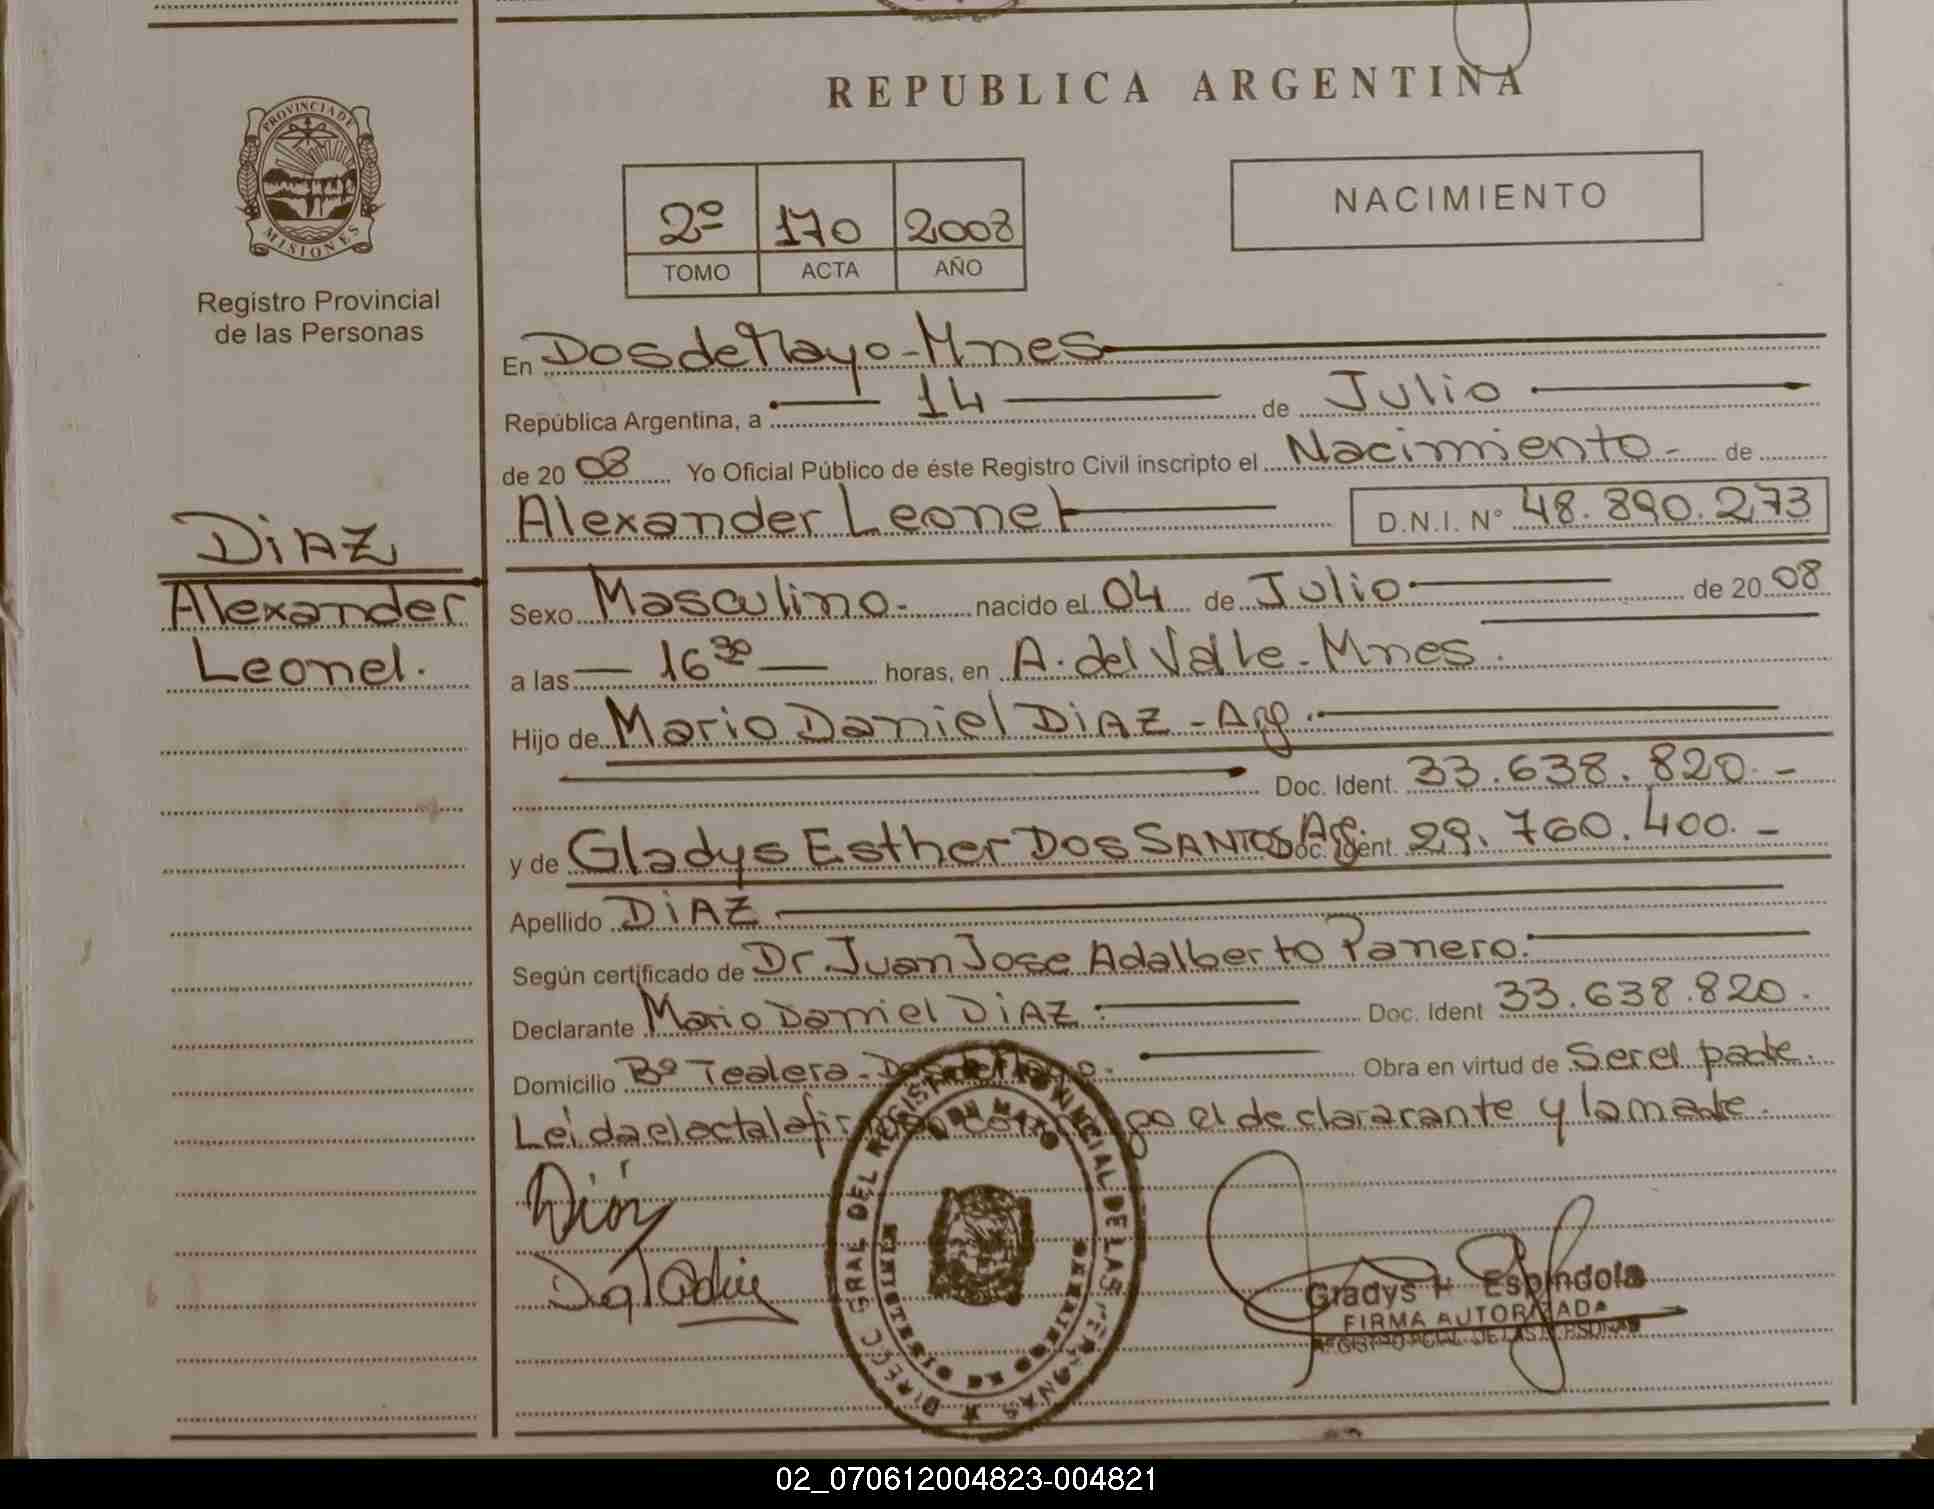 REPUBLICA ARGENTINA
PROVINCIA DE
MISIONES
Registro Provincial
de las Personas
2º 170 2008
TOMO ACTA AÑO
NACIMIENTO
DIAZ
Alexander
Leonel.
En Dos de Mayo - Mnes
República Argentina, a 14 de Julio
de 2008 Yo Oficial Público de éste Registro Civil inscripto el Nacimiento - de
Alexander Leonel D.N.I. Nº 48.890.273
Sexo Masculino - nacido el 04 de Julio de 2008
a las 16 30 horas, en A. del Valle - Mnes.
Hijo de Mario Daniel DIAZ - Arg.
Doc. Ident. 33.638.820. -
y de Gladys Esther DOS SANTOS Arg. Doc. Ident. 29.760.400. -
Apellido DIAZ
Según certificado de Dr. Juan Jose Adalberto Panero.
Declarante Mario Daniel DIAZ Doc. Ident 33.638.820.
Domicilio Bº Tealera - Dos de Mayo. Obra en virtud de Ser el padre.
Leida el acta la conmigo el declararante y la madre.
DIREC. GRAL DEL REGISTRO PROVINCIAL DE LAS PERSONAS
Gladys H Espindola
FIRMA AUTORIZADA
02_070612004823-004821